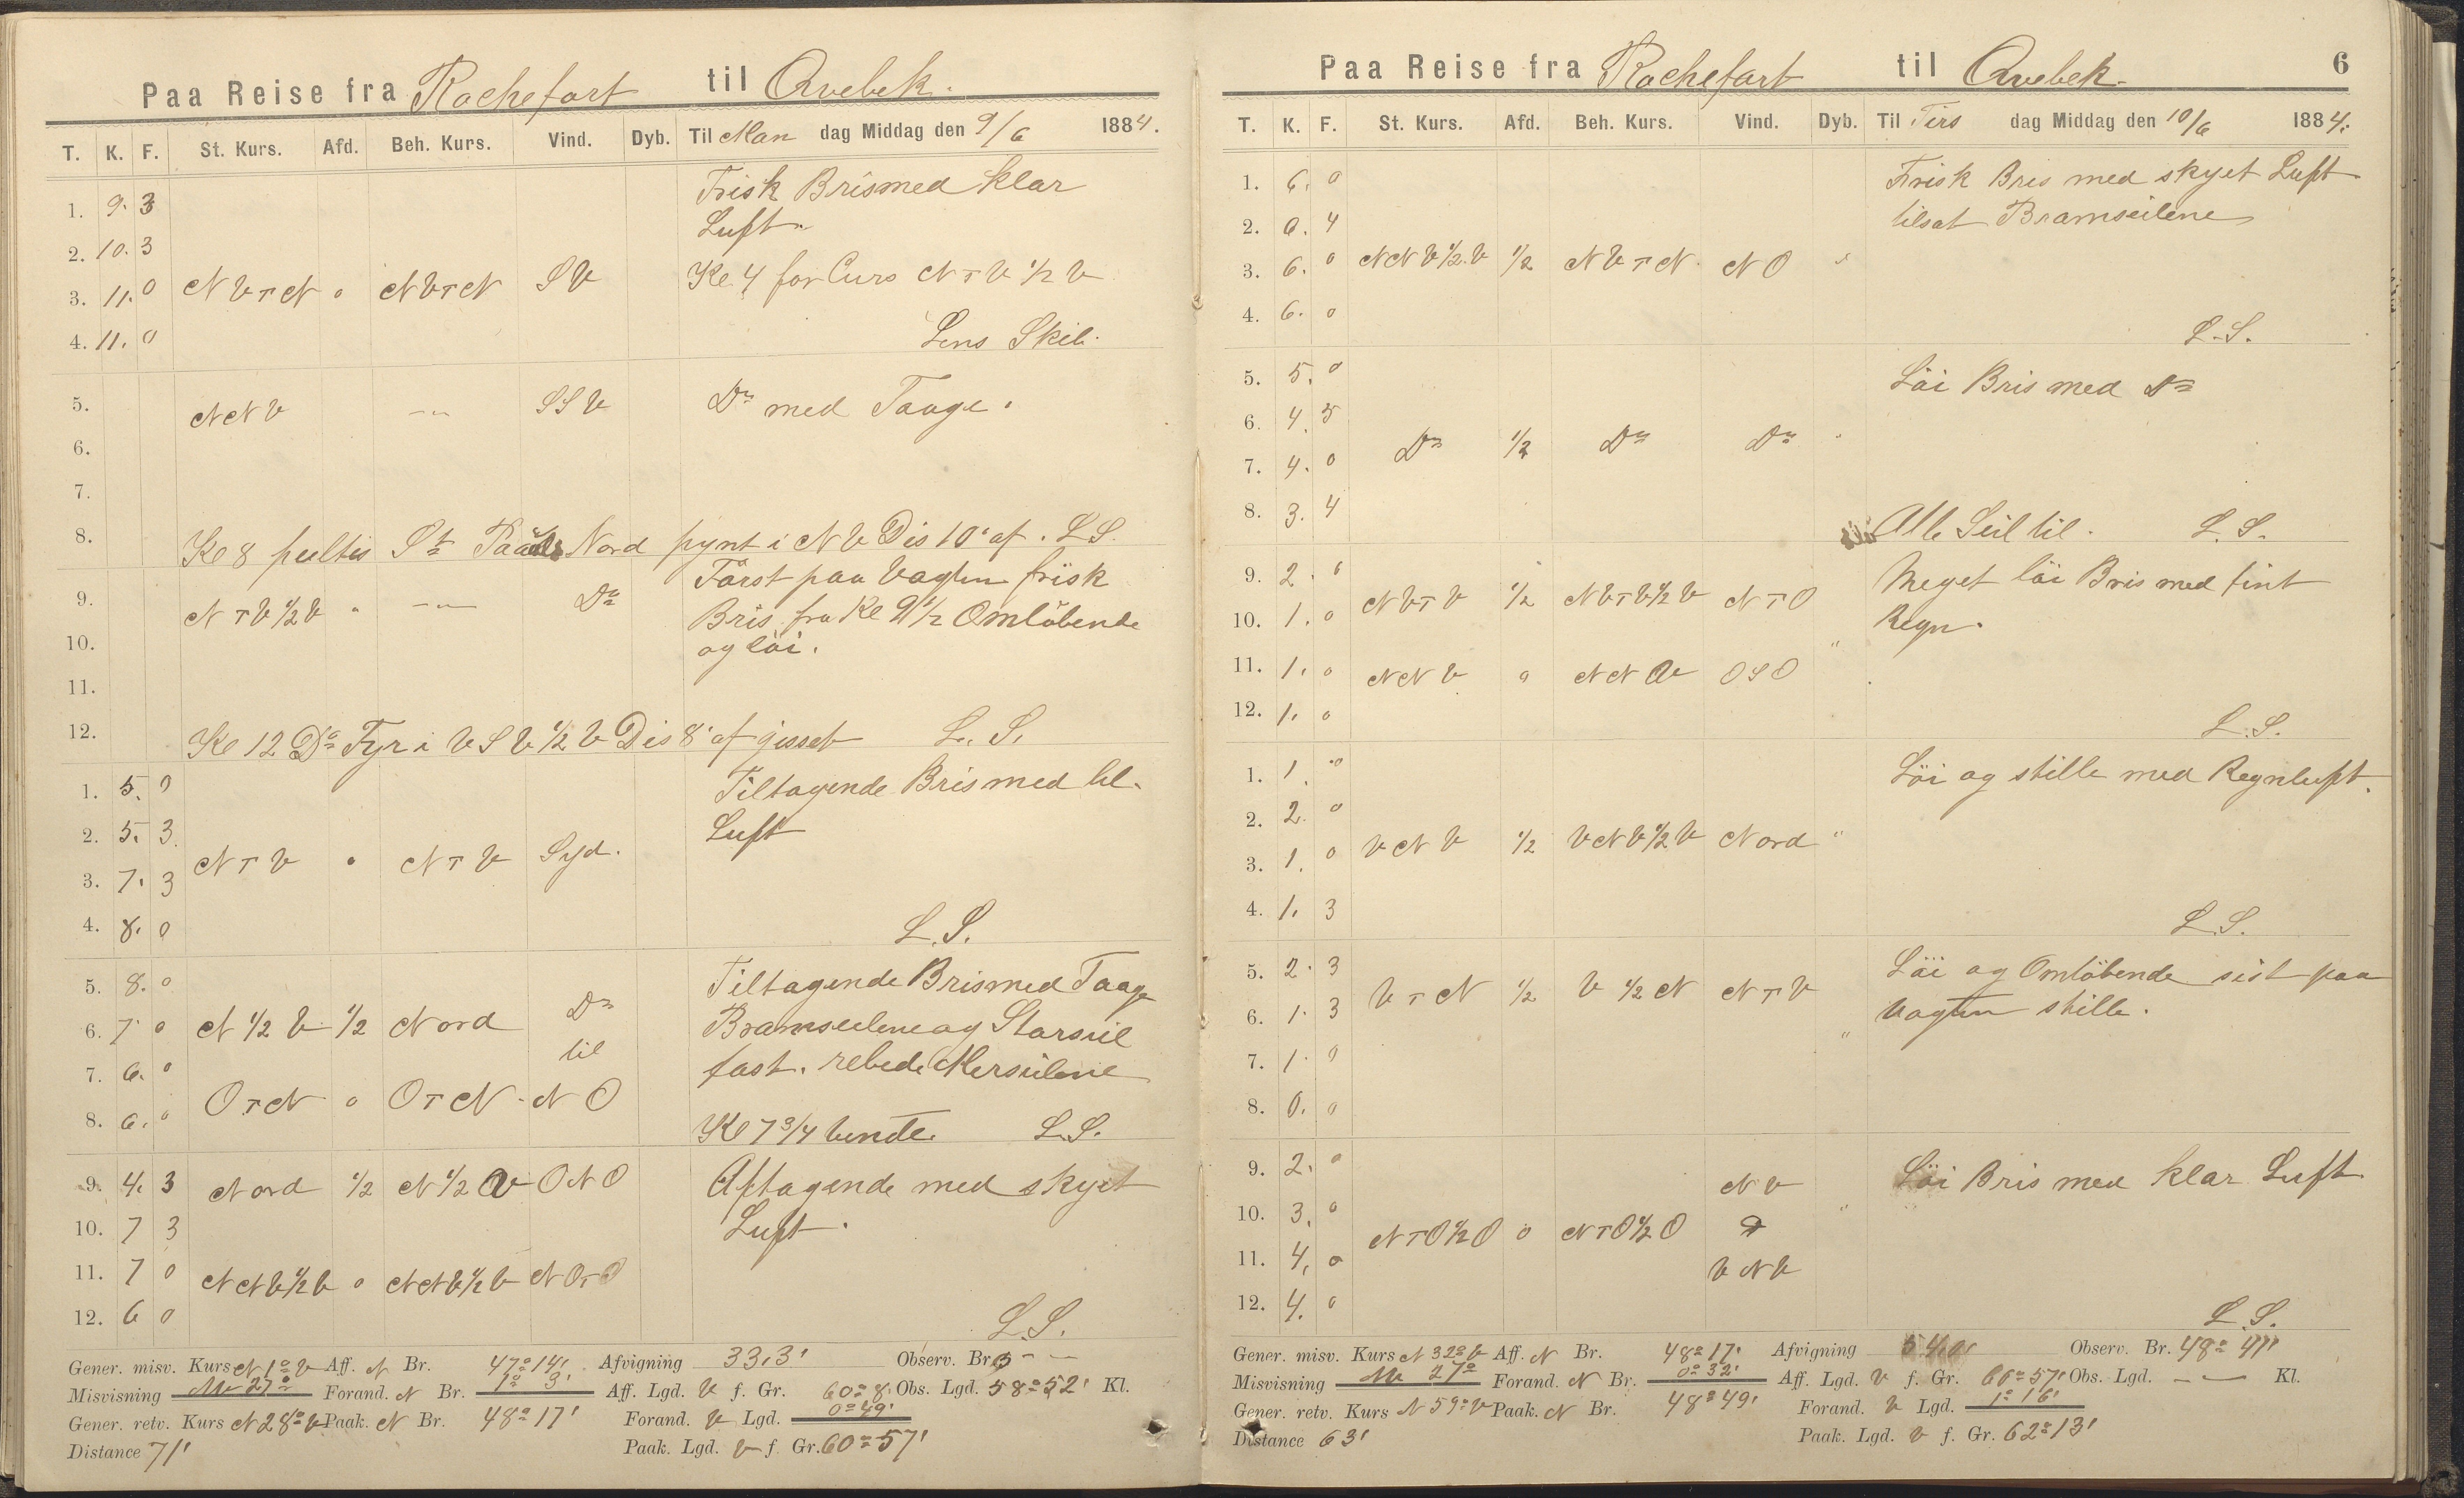 Paa Reise fra Rochefort til Qvebek.
T. K. F. St. Kurs. Afd. Beh. Kurs. Vind. Dyb. Til Man dag Middag den 9/6 1884.
Frisk Bris med klar
1. 9. 3
Luft.
2. 10. 3
3. 11. 0 N V T N 0 N V T N S V Kl. 4 for Curs N T V 1/2 V
4. 11. 0 Lens Skib.
5. N N V -"- S S V Do med Taage.
6.
7.
8. Kl 8 peiltes St Nord pynt i N V Dis 10' af. L S.
Først paa Vagten frisk
9. N T V 1/2 V " -"- Do
Bris fra Kl 9 1/2 Omløbende
10. og løi.
11.
12. Kl 12 Do Fyr i V S V 1/2 V Dis 8' af gisset L. S.
1. 5. 0 Tiltagende Bris med
2. 5. 3 Luft
3. 7. 3 N T V 0 N T V Syd.
4. 8. 0 L. S.
5. 8. 0 Tiltagende Bris med Taage
6. 7 0 N 1/2 V 1/2 Nord Do Bramseilene og Storseil
til
7. 6. 0 fast. rebede Merseilene
8. 6. 0 O T N 0 O T N N O
Kl 7 3/4 vendte. L. S.
9. 4. 3 Nord 1/2 N 1/2 V O N O Aftagende med skyet
10. 7 3 Luft.
11. 7 0 N N V 1/2 V 0 N N V 1/2 V N O T O
12. 6 0 L. S.
Gener. misv. Kurs N 1° V Aff. N Br. 47° 14' Afvigning 33,3' Observ. Br. - -
Misvisning Mv 27° Forand. N Br. 1° 3' Aff. Lgd. V f. Gr. 60° 8' Obs. Lgd. 58° 52' Kl.
Gener. retv. Kurs N 28° V Paak. N Br. 48° 17' Forand. V Lgd. 0° 49'
Distance 71' Paak. Lgd. V f. Gr. 60° 57'
Paa Reise fra Rochefort til Qvebek. 6
T. K. F. St. Kurs. Afd. Beh. Kurs. Vind. Dyb. Til Tirs dag Middag den 10/6 1884.
1. 6. 0 Frisk Bris med skyet Luft
2. 6. 4 tilsat Bramseilene
3. 6. 0 N N V 1/2 V 1/2 N V T N. N O "
4. 6. 0 L. S.
5. 5. 0 Løi Bris med Do
6. 4. 5
7. 4. 0 Do 1/2 Do Do "
8. 3. 4 Alle Seil til. L. S.
9. 2. Meget løi Bris med fint
10. 1. 0 N V T V 1/2 N V T V 1/2 V N T O Regn.
11. 1. 0 N N V 0 N N V O S O
12. 1. 0 L. S.
1. 1. 0 Løi og stille med Regnluft.
2. 2. 0
3. 1. 0 V N V 1/2 V N V 1/2 V Nord "
4. 1. 3 L. S.
5. 2. 3 Løi og Omløbende sist paa
6. 1. 3 V T N 1/2 V 1/2 N N T V Vagten stille.
7. 1. 0
8. 0. 0
9. 2. 0 N V Løi Bris med klar Luft
10. 3. 0 N T O 1/2 O 0 N T O 1/2 O
11. 4. 0 V N V
12. 4. 0 L. S.
Gener. misv. Kurs N 32° V Aff. N Br. 48° 17' Afvigning 54,0' Observ. Br. 48° 41'
Misvisning Mv 27° Forand. N Br. 0° 32' Aff. Lgd. V f. Gr. 60° 57' Obs. Lgd. - - Kl.
Gener. retv. Kurs N 59° V Paak. N Br. 48° 49' Forand. V Lgd. 1° 16'
Distance 63' Paak. Lgd. V f. Gr. 62° 13'